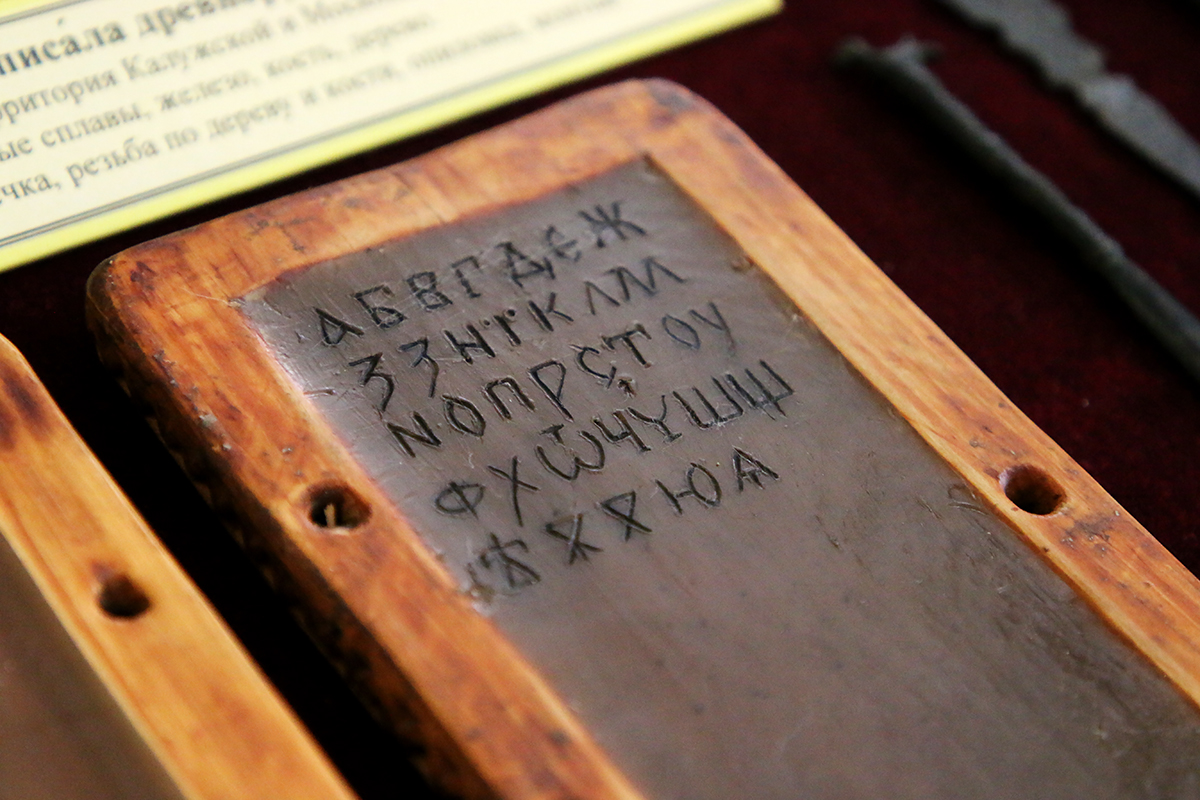 писа́ла древнер
рритория Калужской и Моск
ые сплавы, железо, кость, дерево
чка, резьба по дереву и кости,
АБВГДЄЖ
ЗЗНЇКЛМ
NОПРСТОУ
ФХѾЧҮШЩ
ѪѪЮѦ